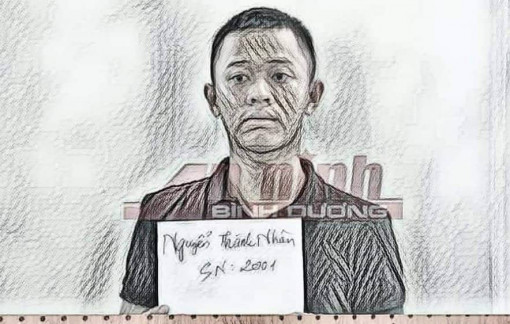 An ninh
BÌNH DƯƠNG
Nguyễn Thành Nhân
SN: 2001